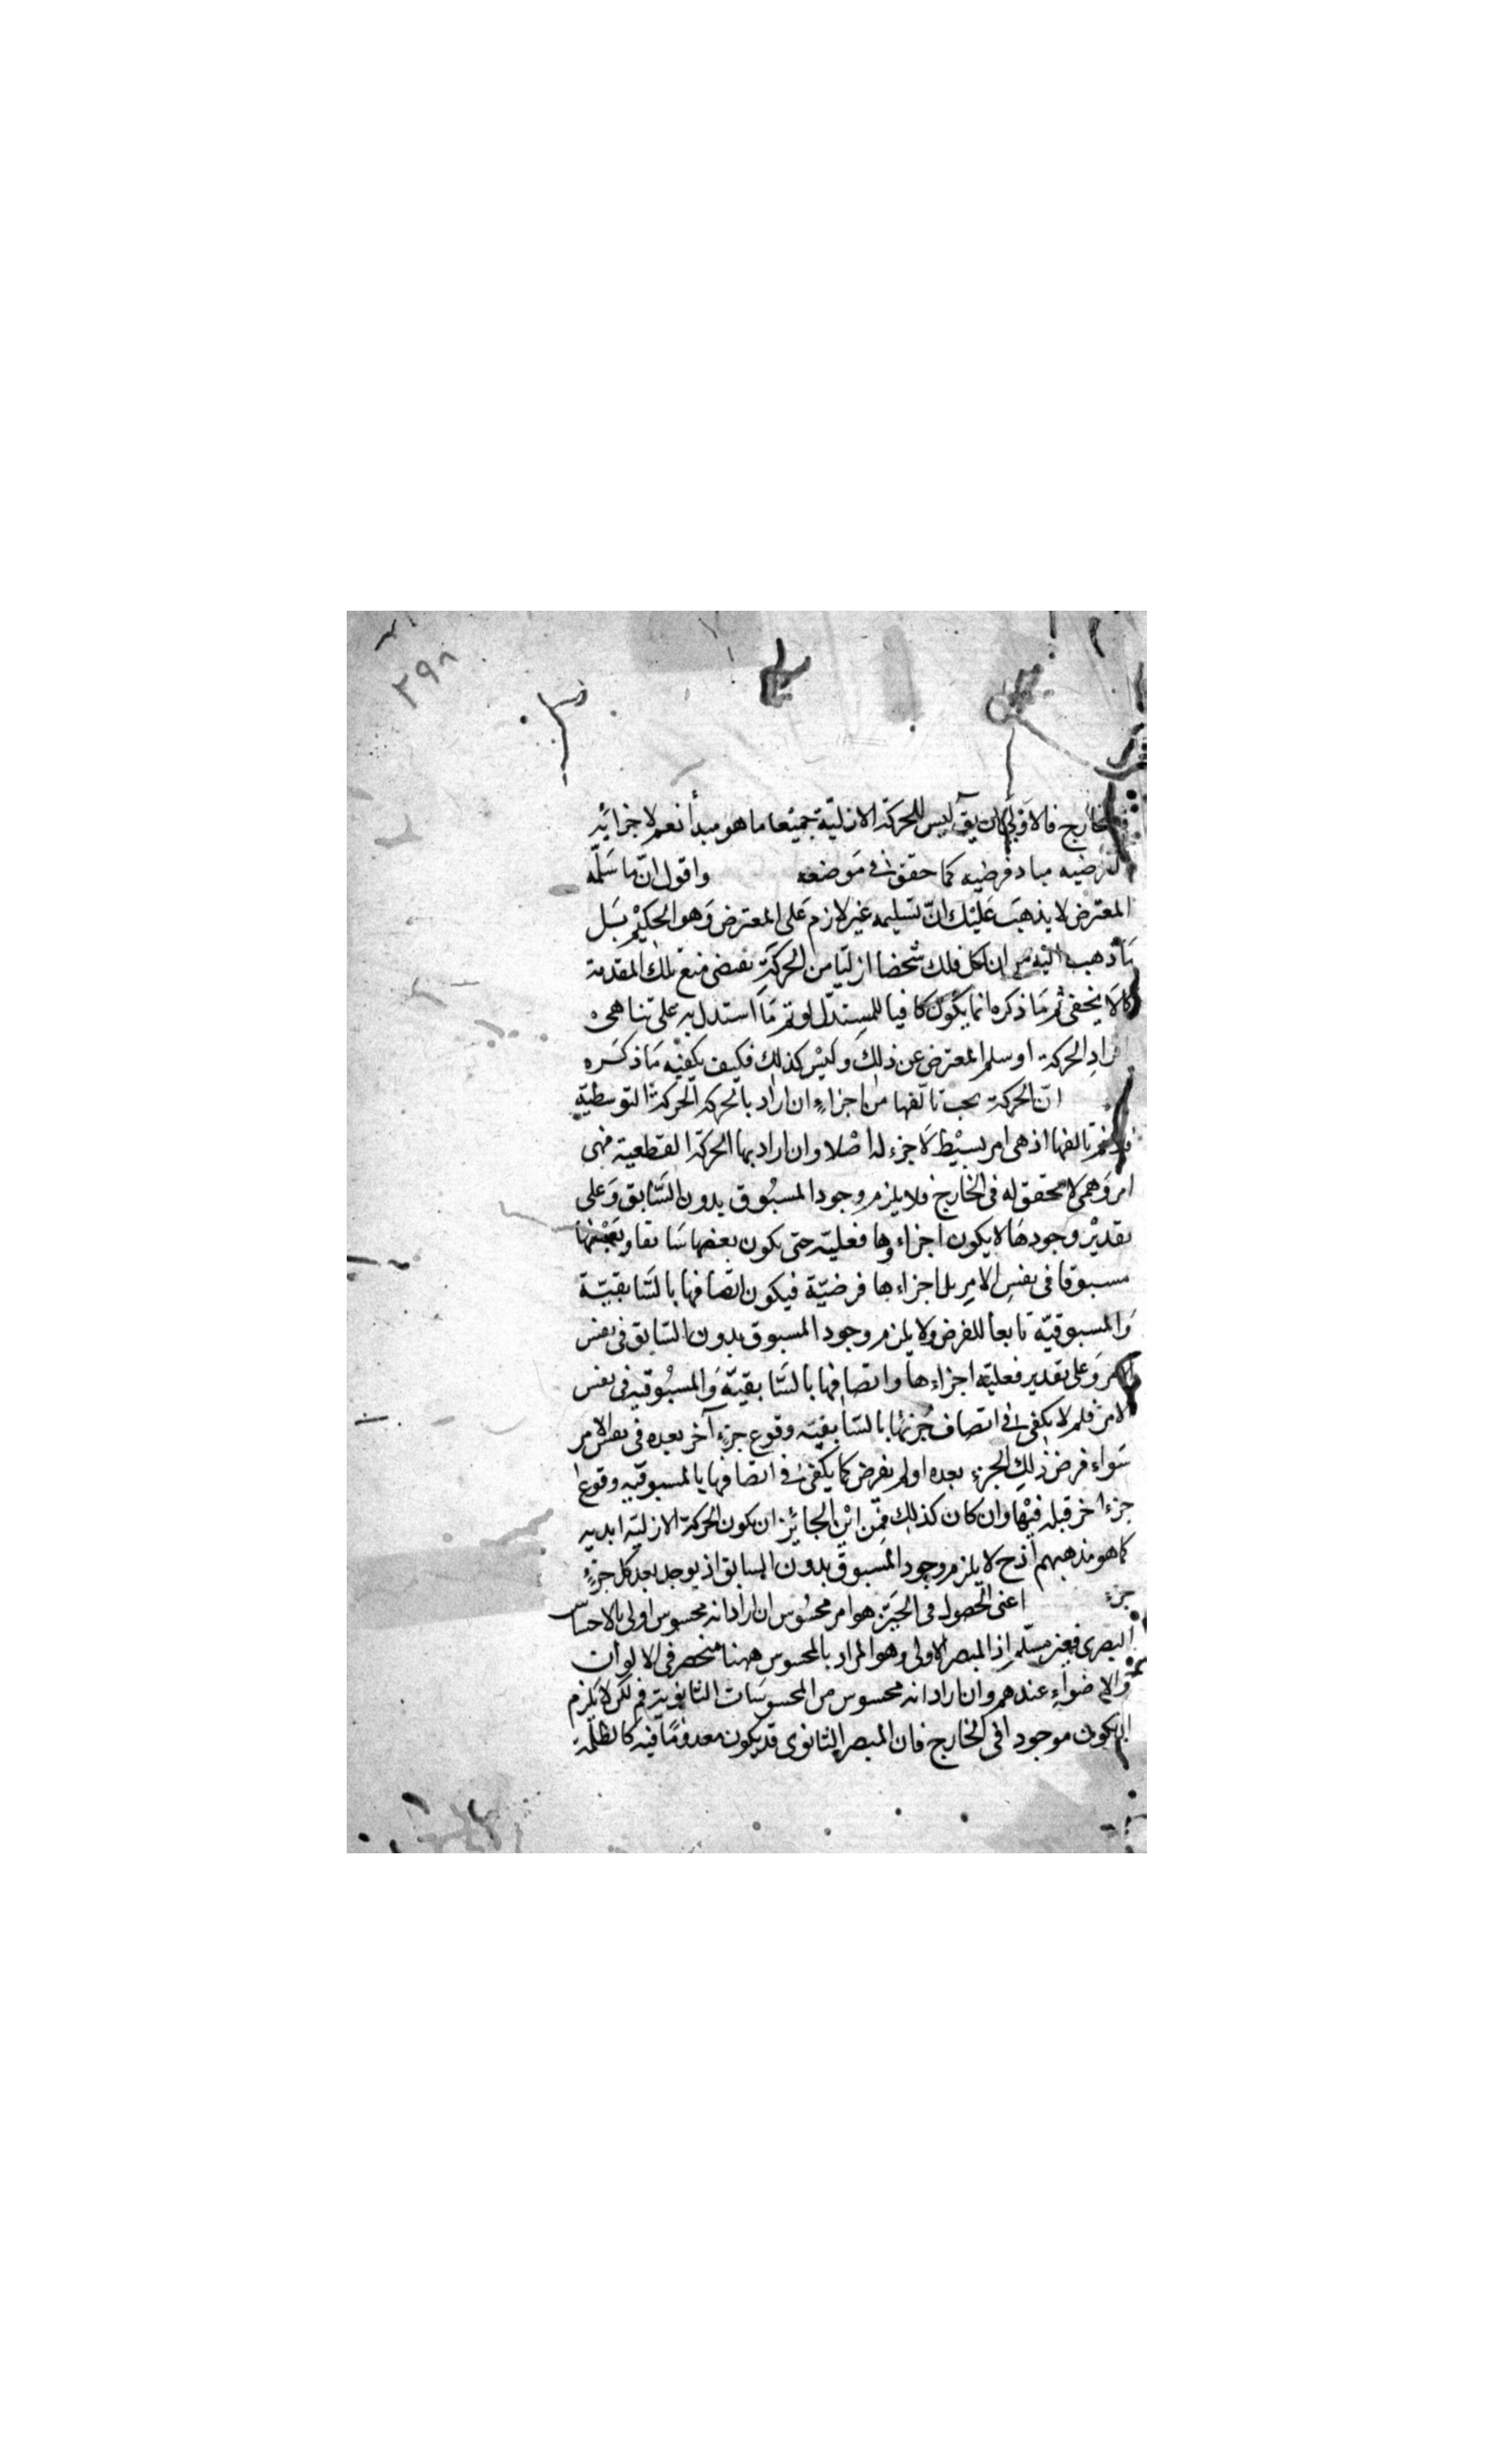 ٢٩٨
الخارج فالاولى ان يق ليس للحركة الازلية جميعا ما هو مبدأ نعم لاجزائه
الفرضيه مباد فرضيه كما حقق فى موضعه واقول ان ما سلمه
المعترض لا يذهب عليك ان تسليمه غير لازم على المعترض وهو الحكيم بل
ما ذهب اليه من ان لكل فلك شخصا ازليا من الحركة يقتضى منع تلك المقدمة
كما لا يخفى ثم ما ذكره انما يكون كافيا للمستدل لو تم ما استدل به على تناهى
افراد الحركة او سلم المعترض عن ذلك وليس كذلك فكيف يكفيه ما ذكره
ان الحركة يجب تالفها من اجزاء ان اراد بالحركة الحركة التوسطية
تالفها اذ هى امر بسيط لا جزء له اصلا وان اراد بها الحركة القطعية فهى
امر وهمى لا تحقق له فى الخارج فلا يلزم وجود المسبوق بدون السابق وعلى
تقدير وجودها لا يكون اجزاءوها فعلية حتى يكون بعضها سابقا وبعضها
مسبوقا فى نفس الامر بل اجزاءها فرضية فيكون اتصافها بالسابقية
والمسبوقية تابعا للفرض ولا يلزم وجود المسبوق بدون السابق فى نفس
الامر وعلى تقدير فعلية اجزاءها واتصافها بالسابقية والمسبوقيه فى نفس
الامر فلم لا يكفى فى اتصاف جزئها بالسابقيه وقوع جزء آخر بعده فى نفس الامر
سواء فرض ذلك الجزء بعده او لم يفرض كما يكفى فى اتصافها بالمسبوقيه وقوع
جزء اخر قبله فيها وان كان كذلك فمن اين الجائز ان يكون الحركة الازلية ابديه
كما هو مذهبهم اذ ح لا يلزم وجود المسبوق بدون السابق اذ يوجد بعد كل جزء
جزء اعنى الحصول فى الحيز هو امر محسوس ان اراد انه محسوس اولى بالاحساس
البصرى فغير مسلم اذ المبصر الاولى وهو المراد بالمحسوس ههنا منحصر فى الالوان
والاضواء عندهم وان اراد انه محسوس من المحسوسات الثانوية فم لكن لا يلزم
ان يكون موجودا فى الخارج فان المبصر الثانوى قد يكون معدوما فيه كالظلمة